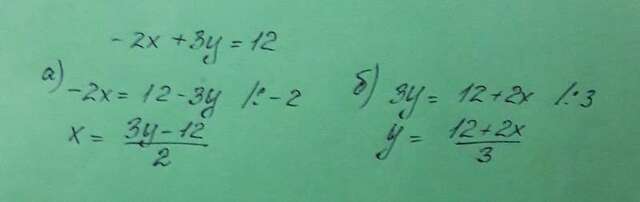 -2x + 3y = 12
а) -2x = 12 - 3y /: -2
x = (3y - 12)/2
б) 3y = 12 + 2x /: 3
y = (12 + 2x)/3